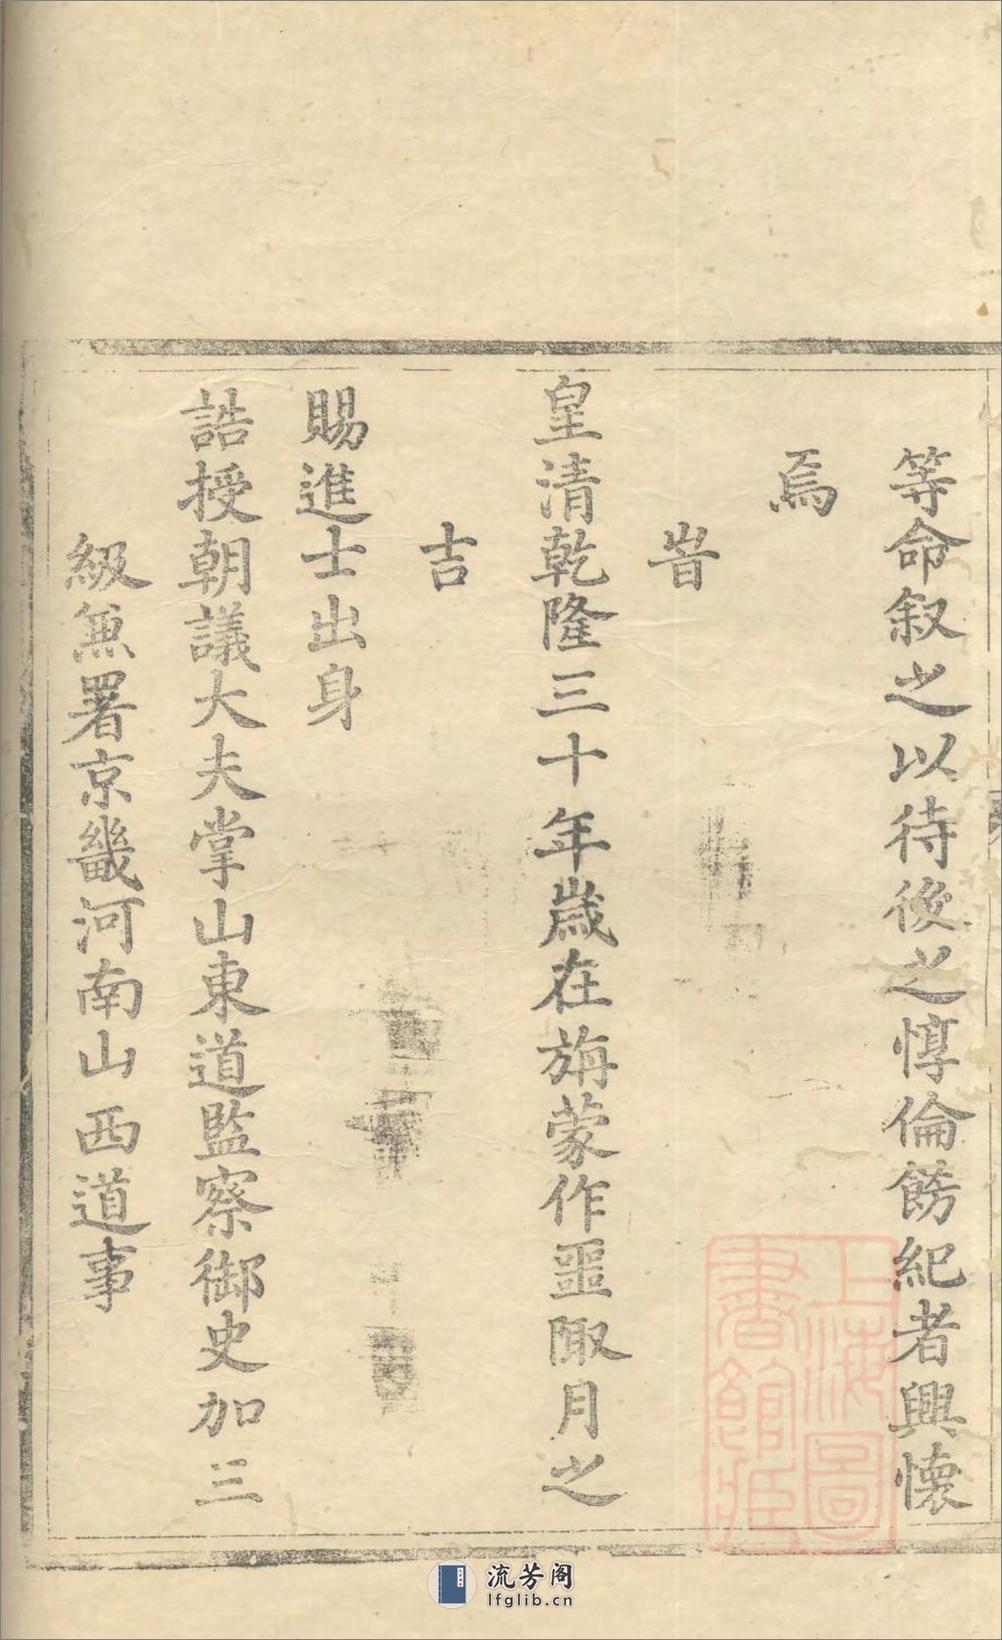 等命叙之以待後之惇倫餝紀者興懷
焉
旹
皇清乾隆三十年歲在旃蒙作噩陬月之
吉
賜進士出身
誥授朝議大夫掌山東道監察御史加三
級兼署京畿河南山西道事
上海圖
書館藏
流芳阁
lfglib.cn